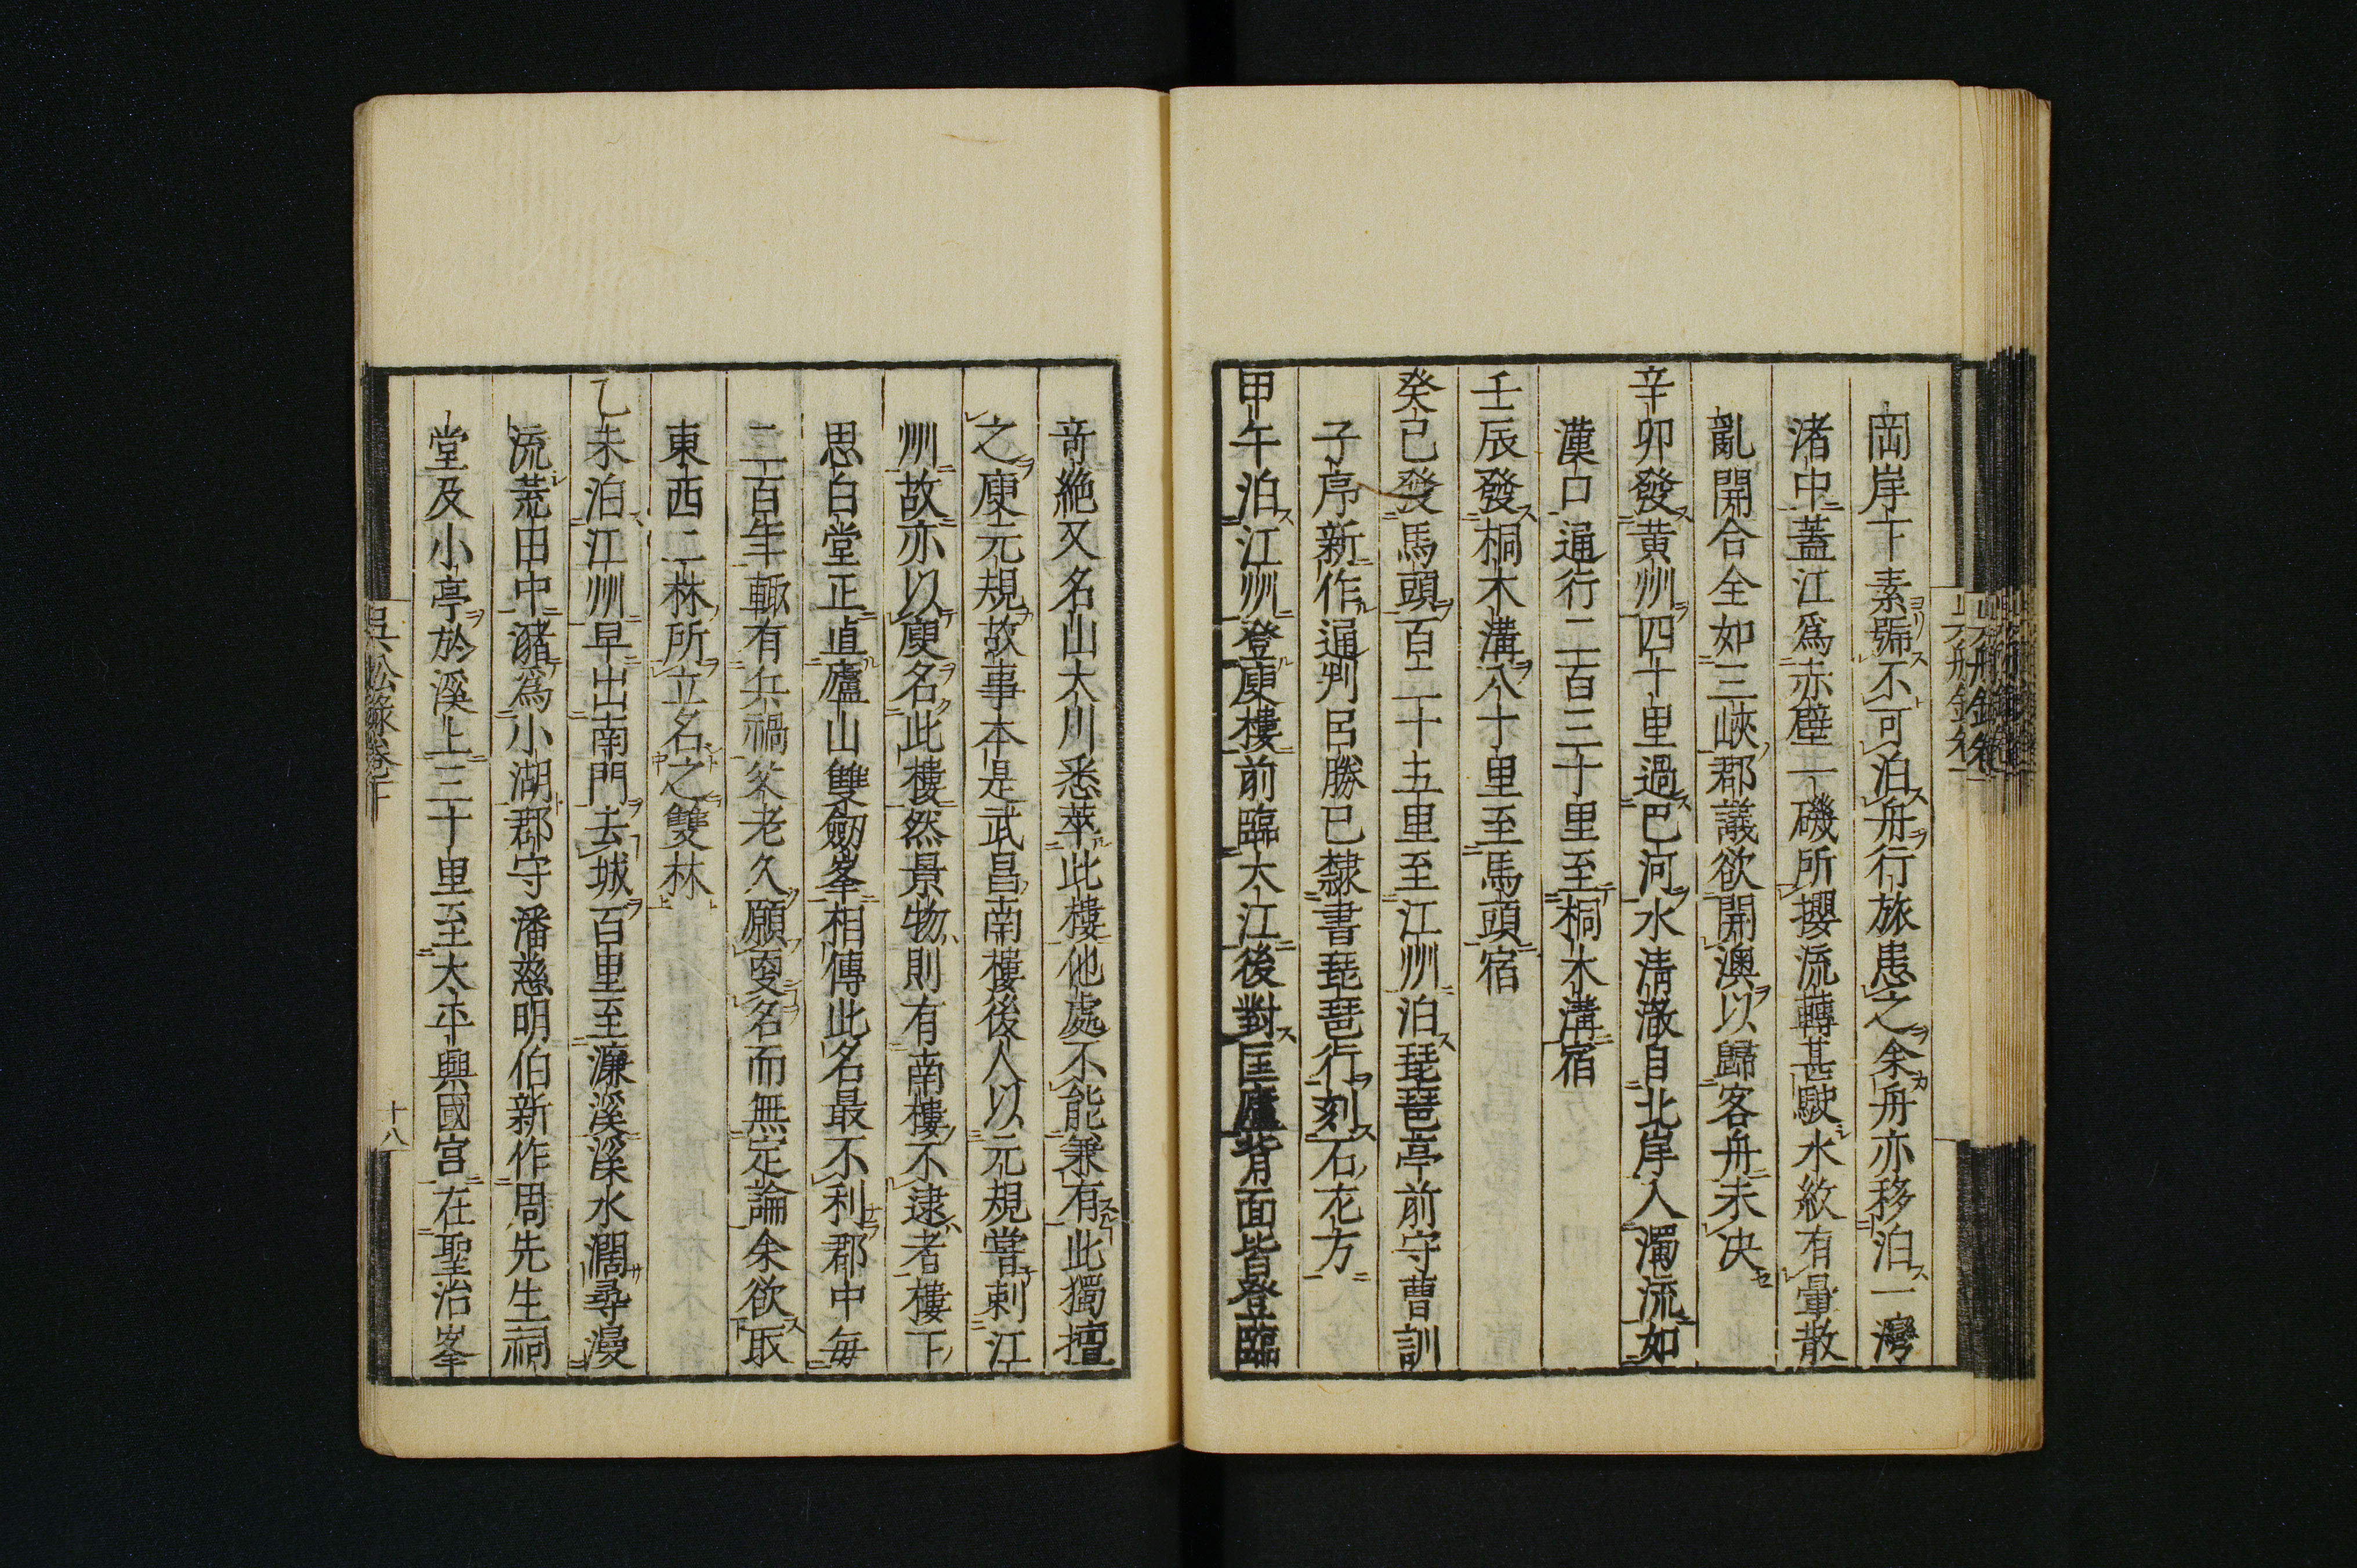 岡岸下素號不可泊舟行旅患之余舟亦移泊一灣
渚中蓋江爲赤壁一磯所攖流轉甚駛水紋有暈散
亂開合全如三峽郡議欲開澳以歸客舟未决
辛卯發黄州四十里過巴河水清澈自北岸入濁流如
漢口通行二百三十里至桐木溝宿
壬辰發桐木溝八十里至馬頭宿
癸已發馬頭百二十五里至江州泊琵琶亭前守曹訓
子序新作通判呂勝已隸書琵琶行刻石左方
甲午泊江州登庾樓前臨大江後對匡廬背面皆登臨
竒絶又名山大川悉萃此樓他處不能兼有此獨擅
之庾元規故事本是武昌南樓後人以元規嘗刺江
州故亦以庾名此樓然景物則有南樓不逮者樓下
思白堂正直廬山雙劒峯相傳此名最不利郡中毎
二百年輙有兵禍父老久願更名而無定論余欲取
東西二林所立名之雙林
乙未泊江州早出南門去城百里至濂溪溪水濶尋漫
流荒田中瀦爲小湖郡守潘慈明伯新作周先生祠
堂及小亭於溪上三十里至太平興國宮在聖治峯
吳船錄卷下
十八